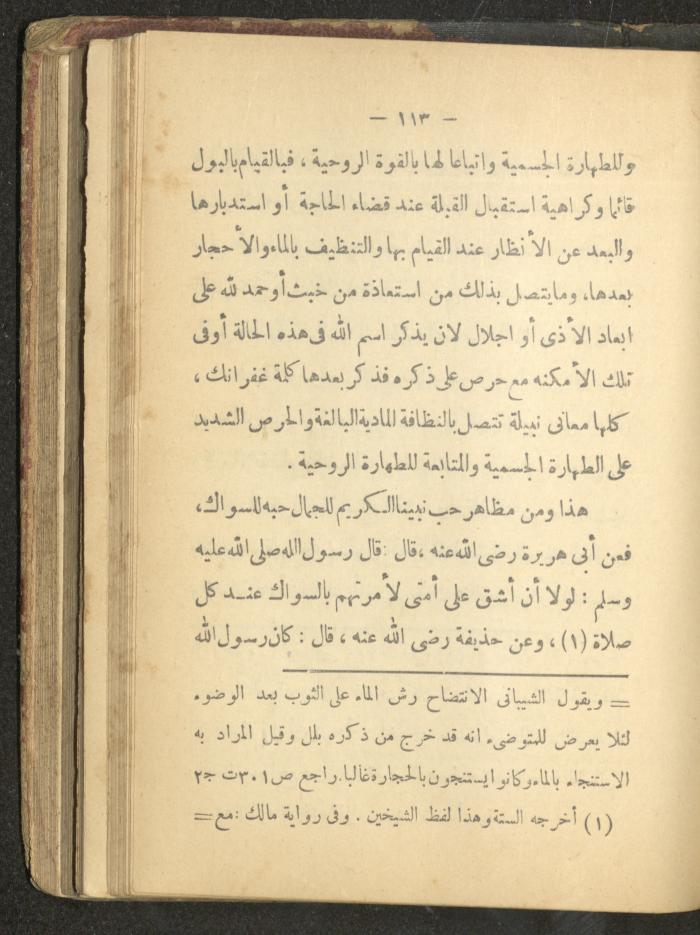 — ١١٣ —
وللطهارة الجسمية واتباعا لها بالقوة الروحية ، فبالقيام بالبول
قائما وكراهية استقبال القبلة عند قضاء الحاجة أو استدبارها
والبعد عن الأنظار عند القيام بها والتنظيف بالماء والأحجار
بعدها، وما يتصل بذلك من استعاذة من خبث أو حمد لله على
ابعاد الأذى أو اجلال لان يذكر اسم الله فى هذه الحالة أو فى
تلك الأمكنه مع حرص على ذكره فذكر بعدها كلمة غفرانك ،
كلها معانى نبيلة تتصل بالنظافة المادية البالغة والحرص الشديد
على الطهارة الجسمية والمتابعة للطهارة الروحية .
هذا ومن مظاهر حب نبينا الكريم للجمال حبه للسواك،
فعن أبى هريرة رضى الله عنه ،قال : قال رسول الله صلى الله عليه
وسلم : لولا أن أشق على أمتى لأمرتهم بالسواك عند كل
صلاة (١) ، وعن حذيفة رضى الله عنه ، قال : كان رسول الله
= ويقول الشيبانى الانتضاح رش الماء على الثوب بعد الوضوء
لئلا يعرض للمتوضىء انه قد خرج من ذكره بلل وقيل المراد به
الاستنجاء بالماء وكانوا يستنجون بالحجارة غالبا. راجع ص ٣٠١ت ج٢
(١) أخرجه الستة وهذا لفظ الشيخين . وفى رواية مالك : مع =